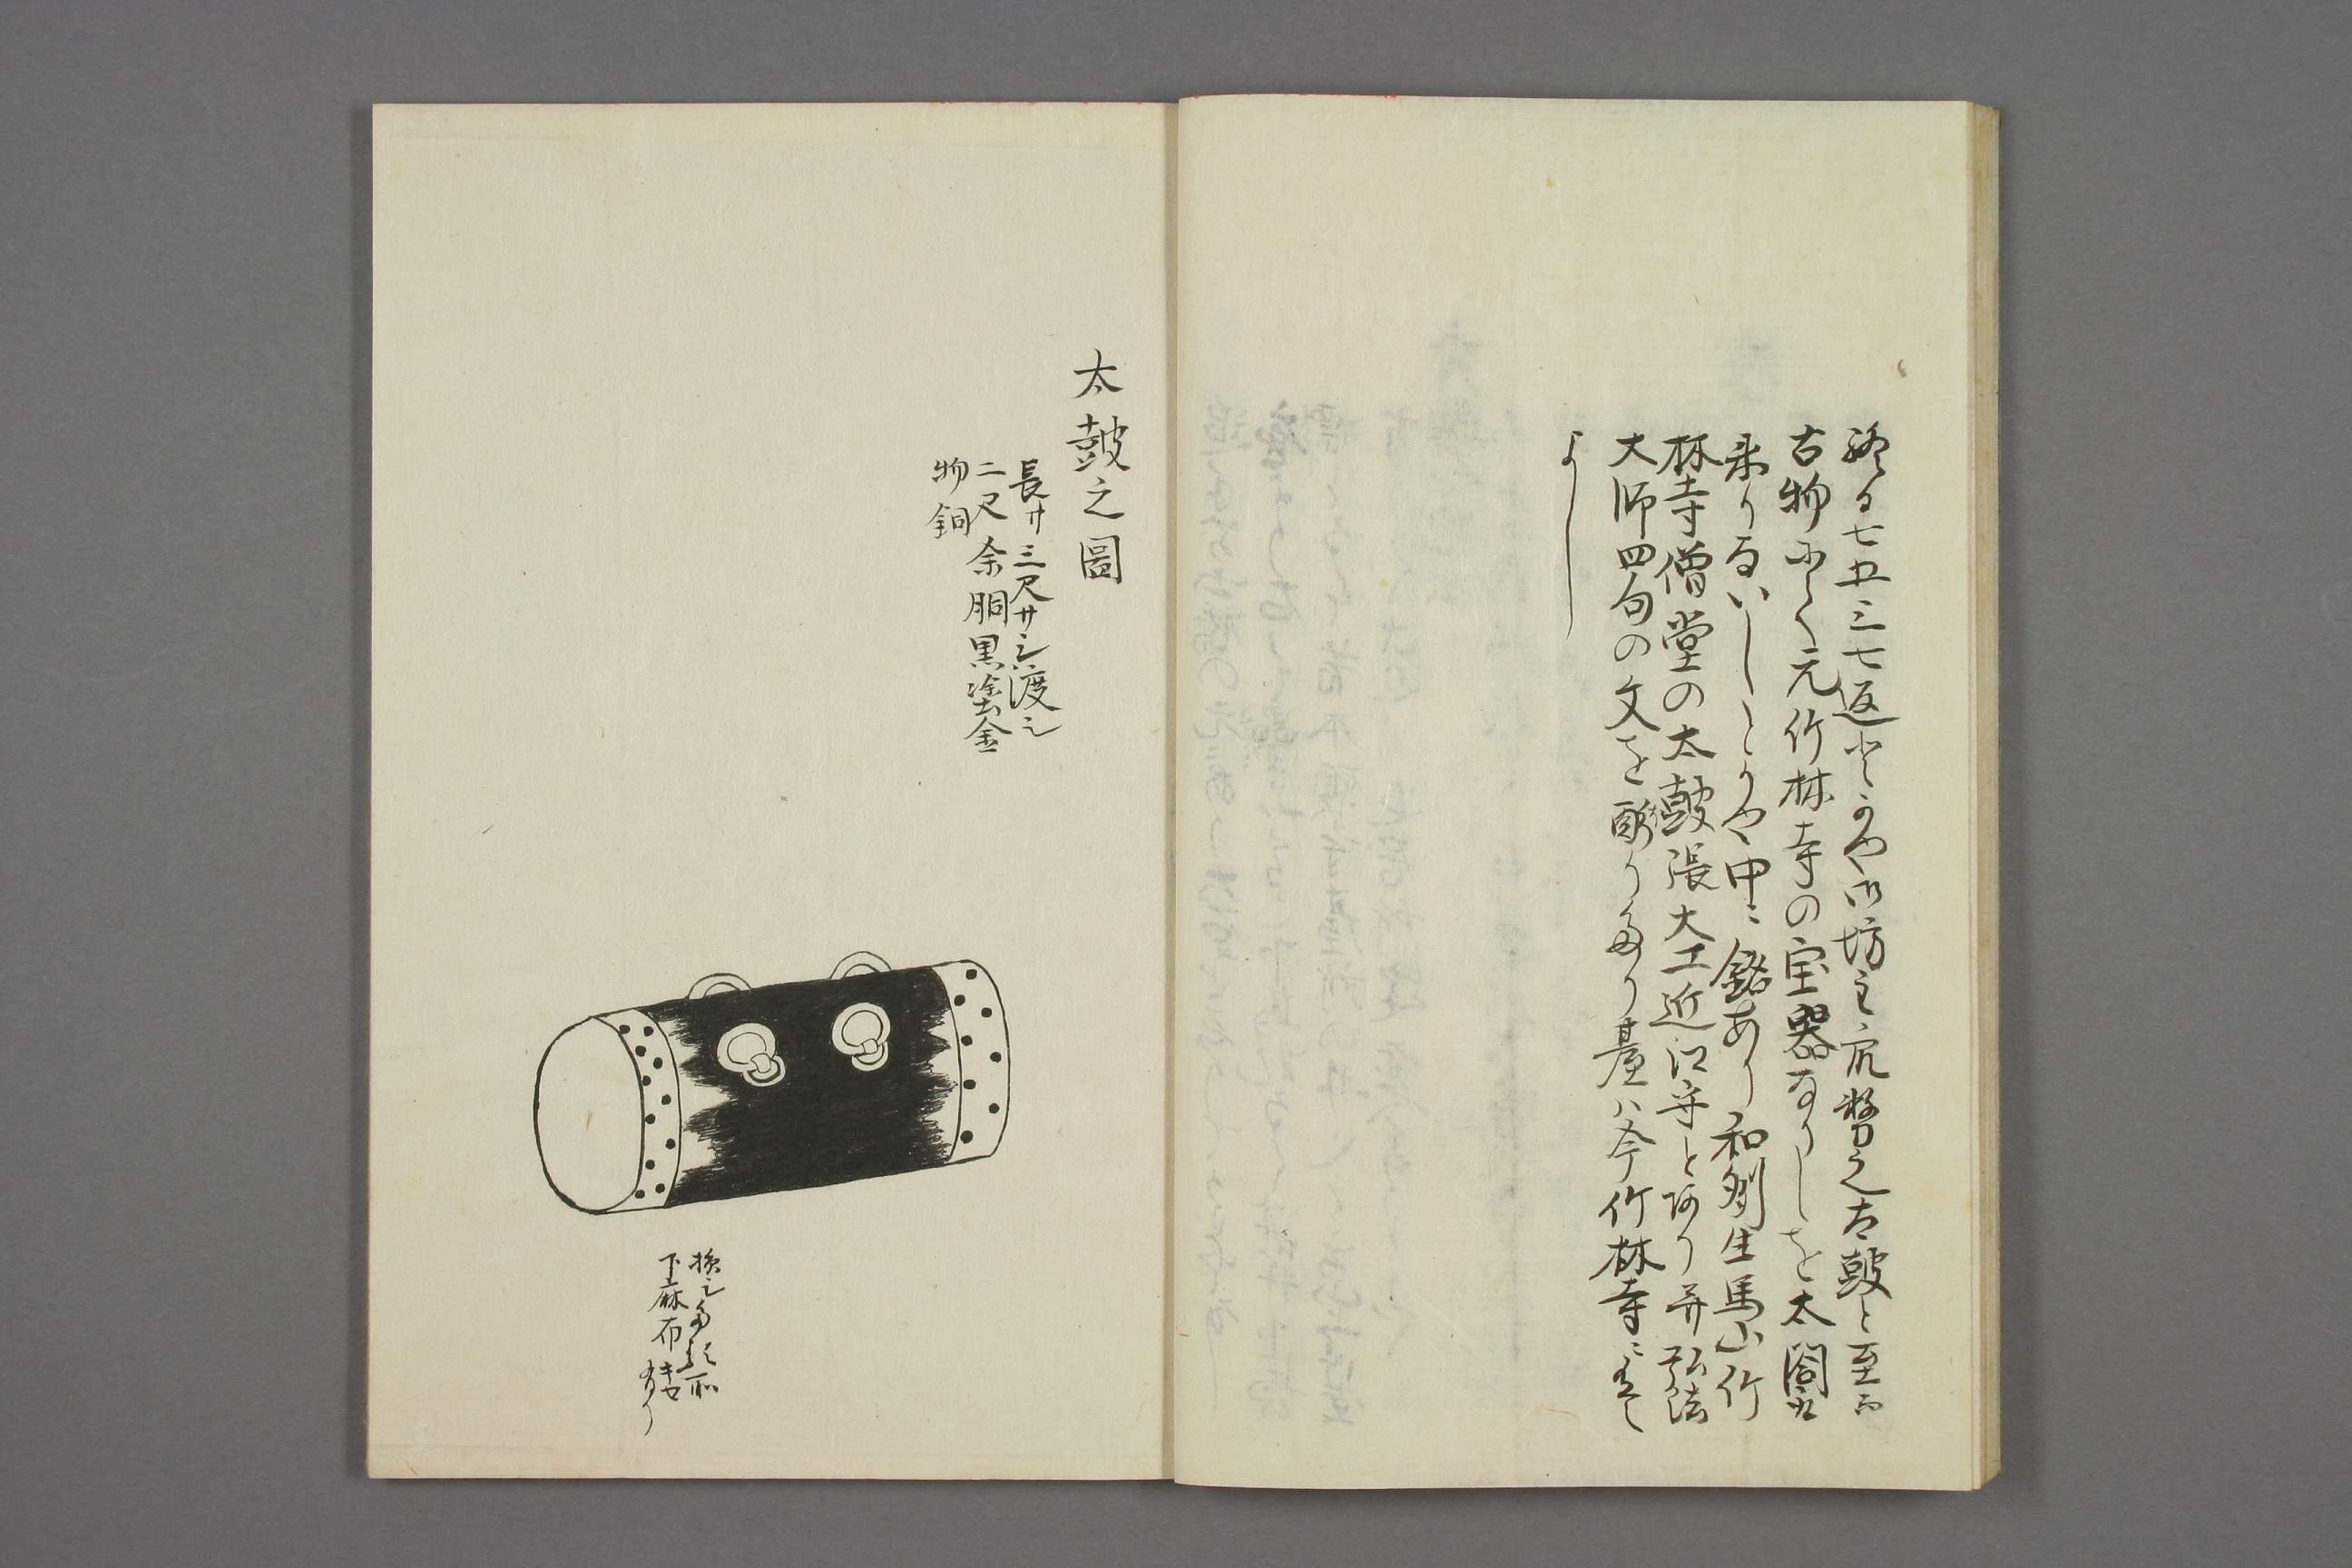 終る七五三七返とかや此坊主京勢之太鼓と至而
古物にて元竹林寺の宝器なりしを太閤より
来りるいしとかや中ニ銘あり和刕生馬山竹
林寺僧堂の太鼓張大工近江守とあり并弘法
大師四句の文を彫りあり臺ハ今竹林寺ニ有て
よし
太鼓之圖
長サ三尺サシ渡シ
二尺余胴黒塗金
物銅
損シある所
下麻布キセ
有り